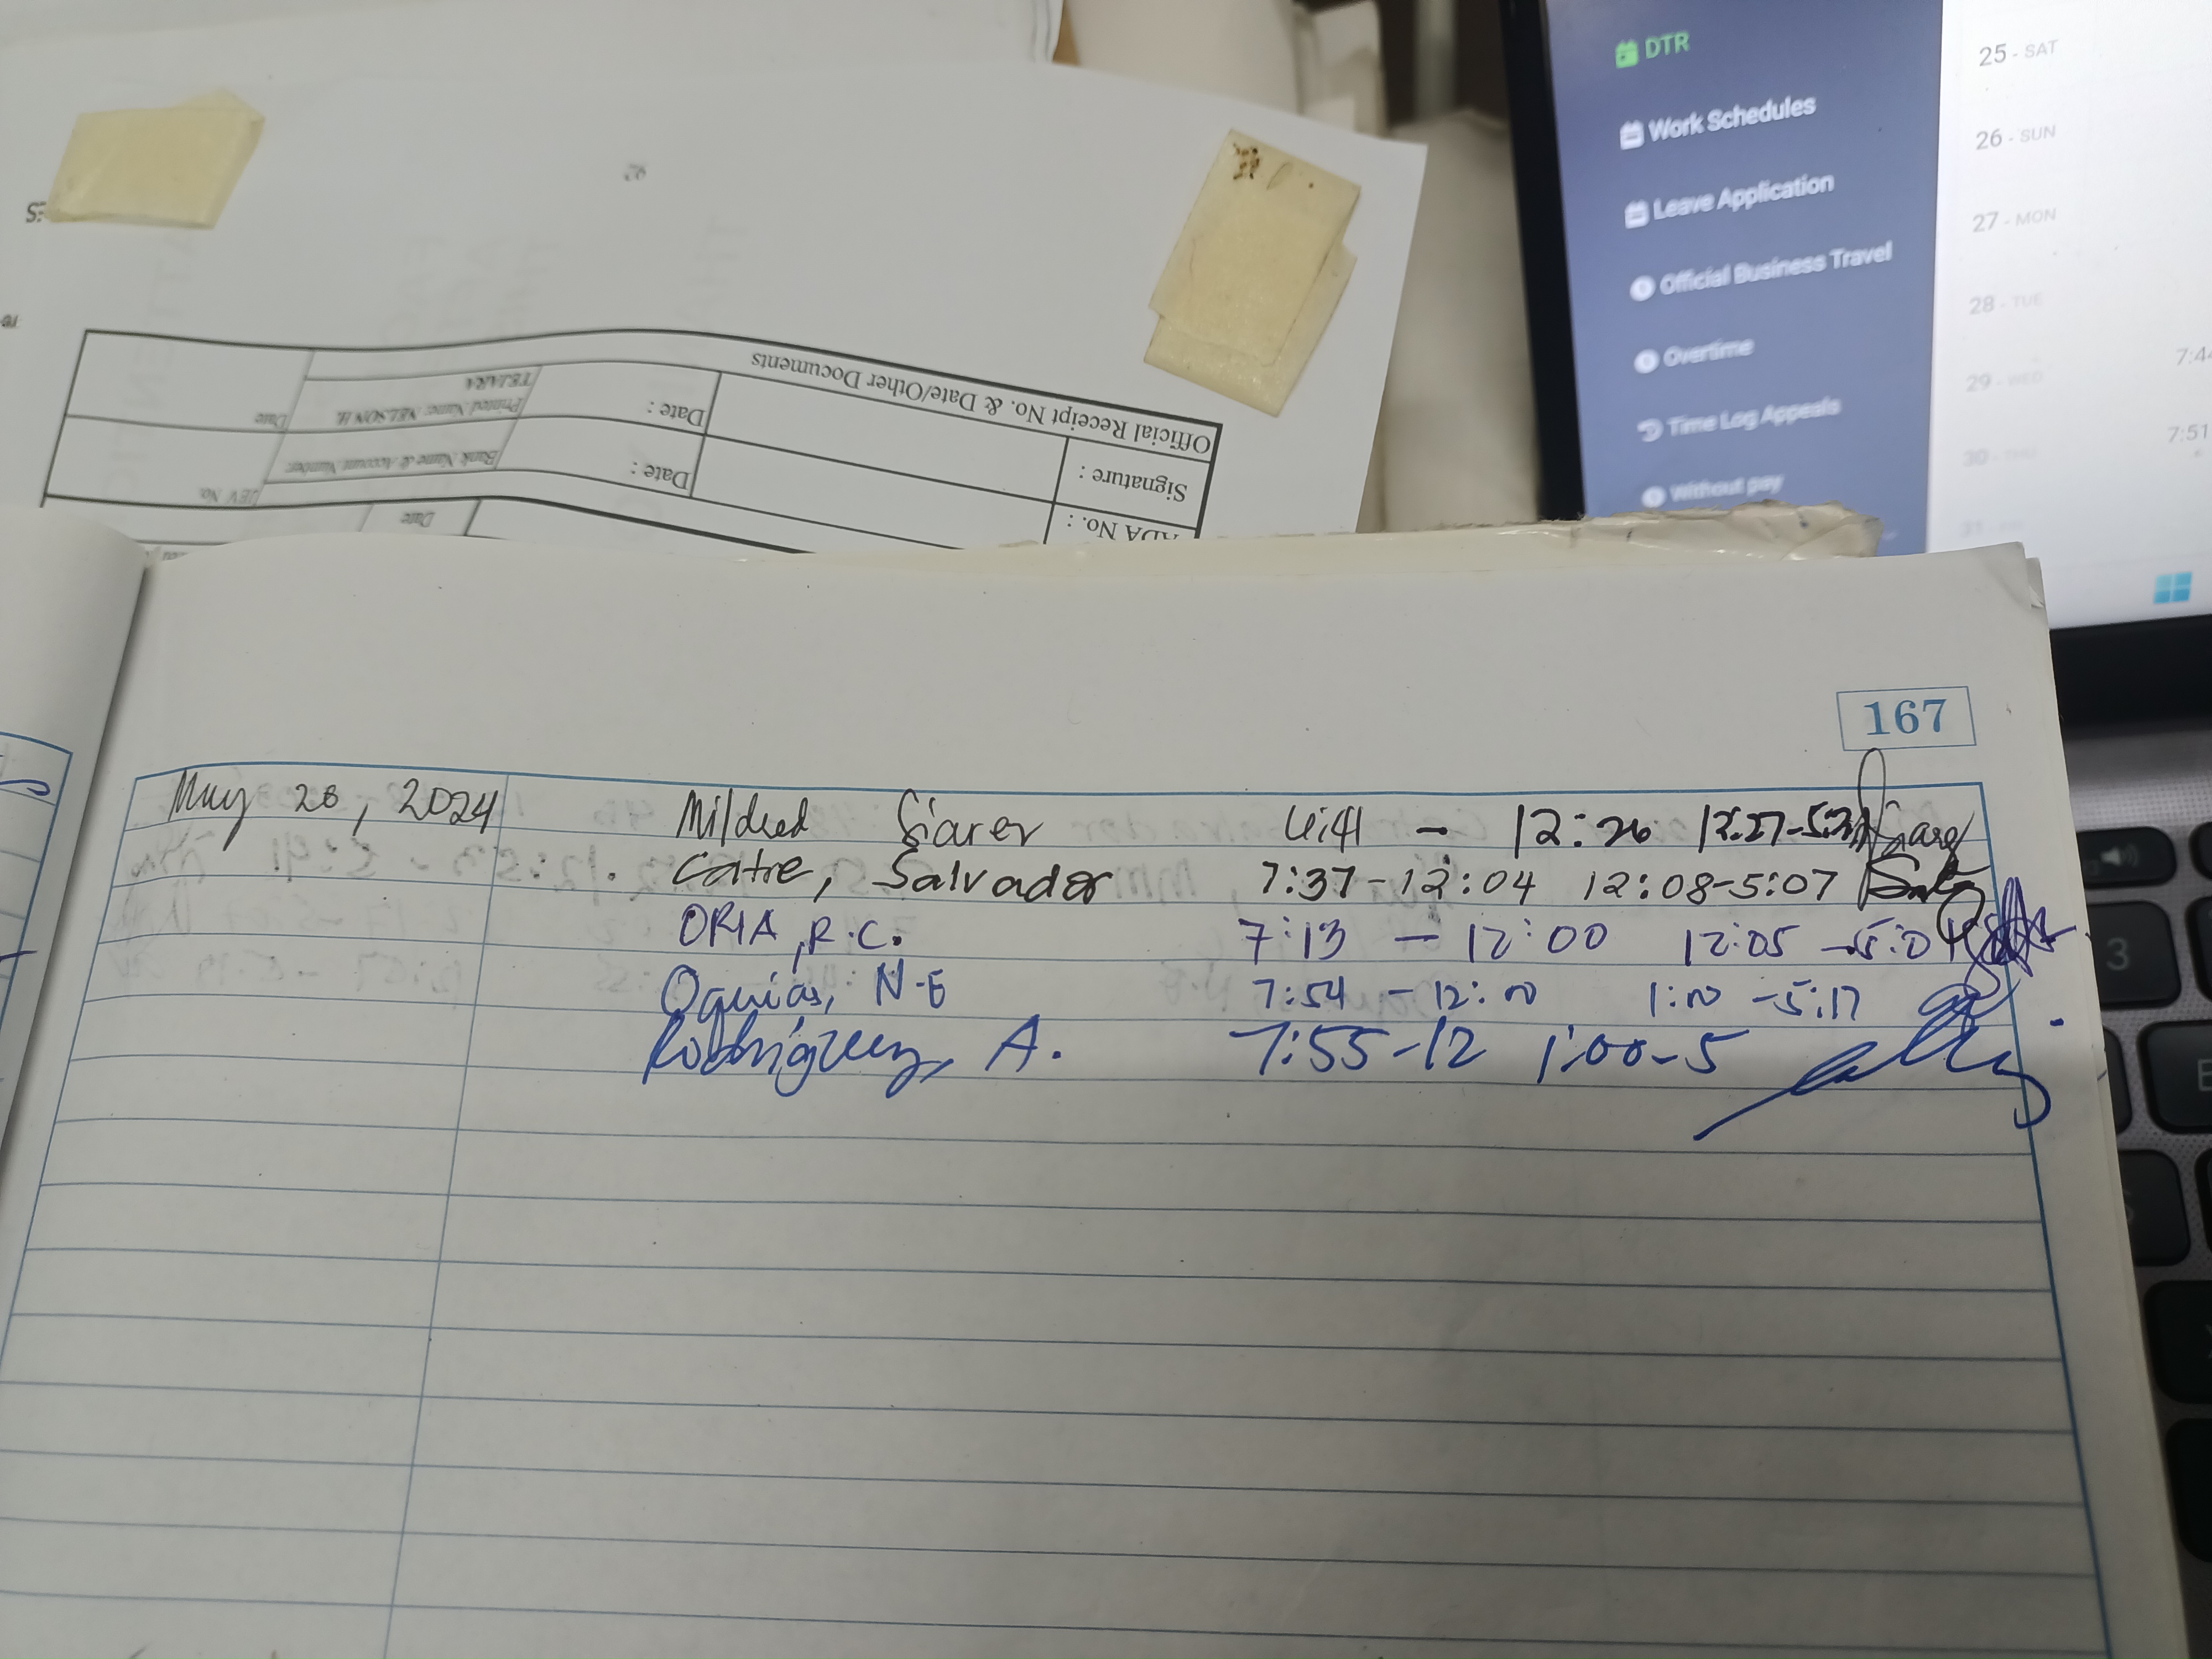 DTR
Work Schedules
Leave Application
Official Business Travel
Overtime
Time Log Appeals
Without pay
25 - SAT
26 - SUN
27 - MON
28 - TUE
29 - WED
30 - THU
7:51
Official Receipt No. & Date/Other Documents
Signature :
Date :
Printed Name: NELSON H. TEJARA
Date
ADA No. :
Date :
Bank Name & Account Number:
JEV No.
Date
167
May 28, 2024 Mildred 12:26 12:27-
Catre, Salvador 7:37-12:04 12:08-5:07
ORIA, R.C. 7:13 - 12:00 12:05 -
Oquias, N.E 7:54 - 12:00 1:00 - 5:17
Rodriguez, A. 7:55-12 1:00-5